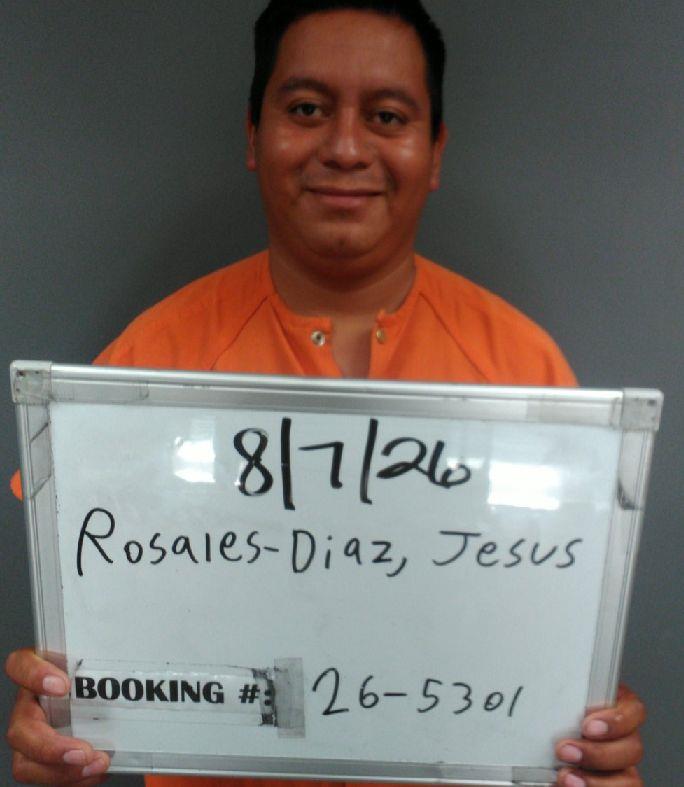 8/7/26
Rosales-Diaz, Jesus
BOOKING #: 26-5301